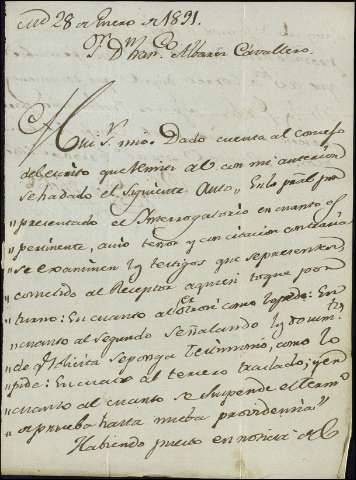 Md 28 de Enero de 1891.
Sr. Dn. Franco. Albarin Cavallero.
Mui Sr. mio: Dado cuenta al consejo
del escrito que remiti al con mi anterior
se ha dado el siguiente Auto, En lo pral por
"presentado el Interrogatorio en cuanto es
"pertinente, a su tenor y con citacion contraria
"se examinen los testigos que se presenten,
"cometido al Receptor a quien toque por
"turno: En cuanto al otrosi como lo pide: En
"cuanto al segundo señalando los
"de Visita se ponga Testimonio, como lo
pide: En cuanto al tercero traslado; y en
"cuanto al cuarto se suspende el term.o
"de prueba hasta nueba providencia"
Habiendo puesto en noticia de